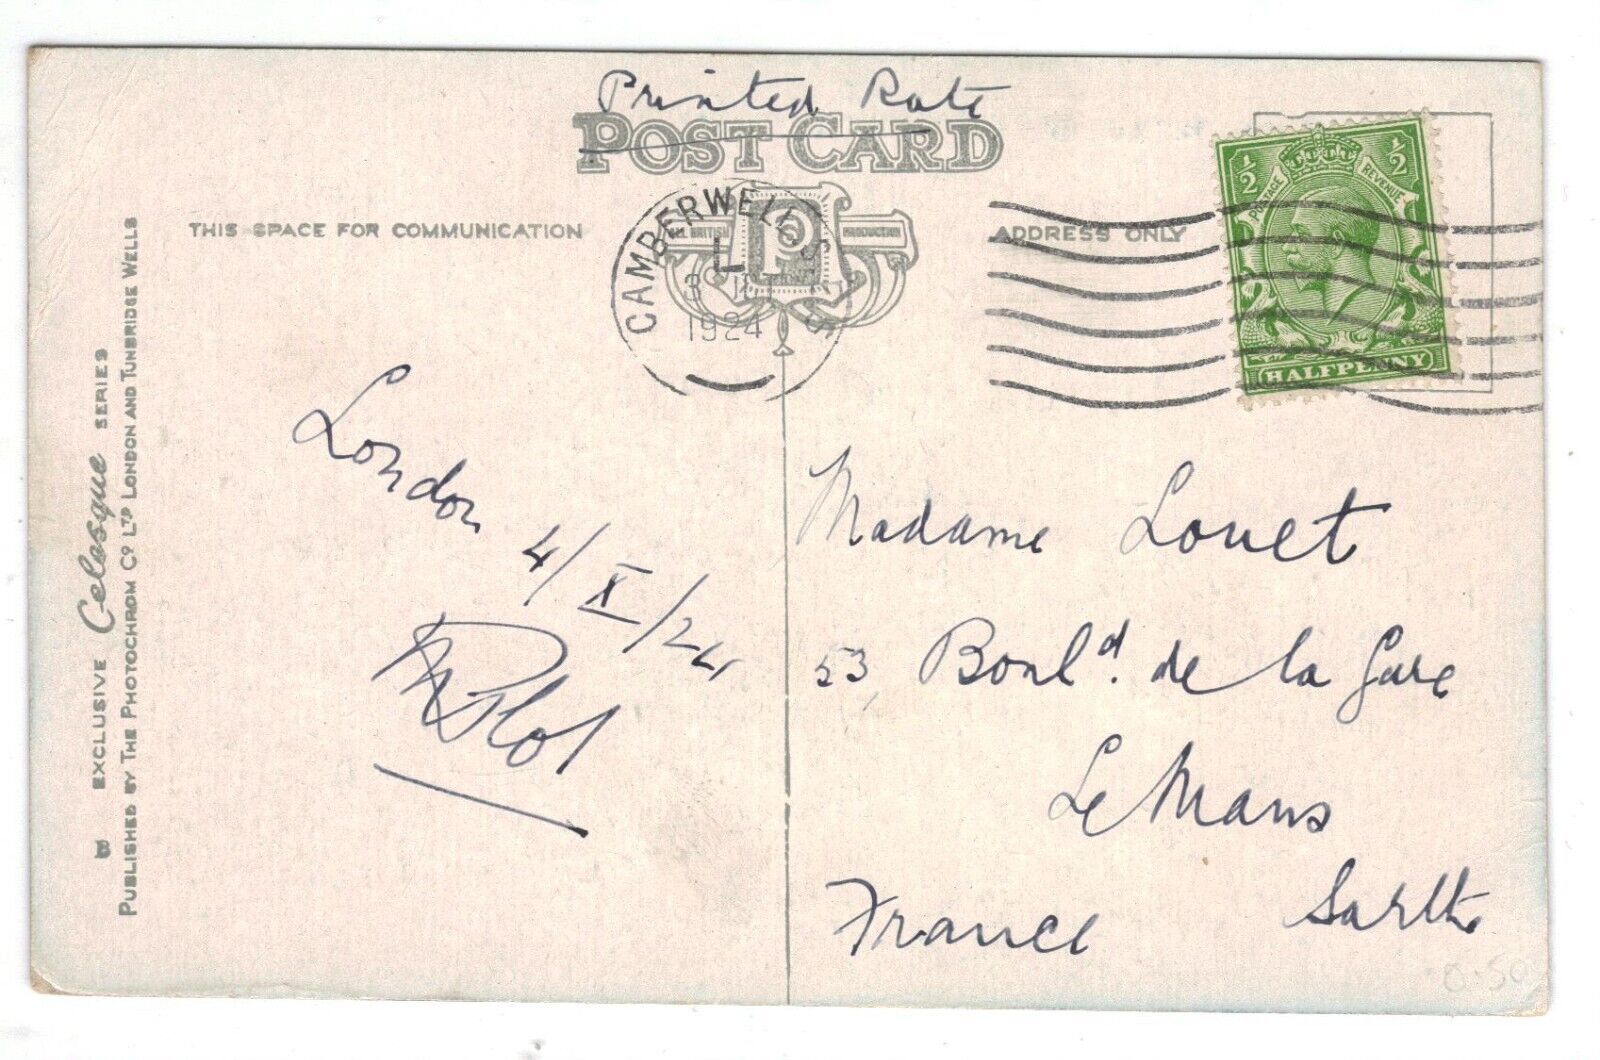 Printed Rate
POST CARD
THIS SPACE FOR COMMUNICATION
BRITISH PRODUCTION
ADDRESS ONLY
CAMBERWELL S.O. S.E.
1924
½ ½
POSTAGE REVENUE
HALFPENNY
EXCLUSIVE Celesque SERIES
PUBLISHED BY THE PHOTOCHROM Cº LTD LONDON AND TUNBRIDGE WELLS
London
4/X/24
Madame Louet
53, Boul^d. de la Gare
Le Mans
Sarthe
France
0.50